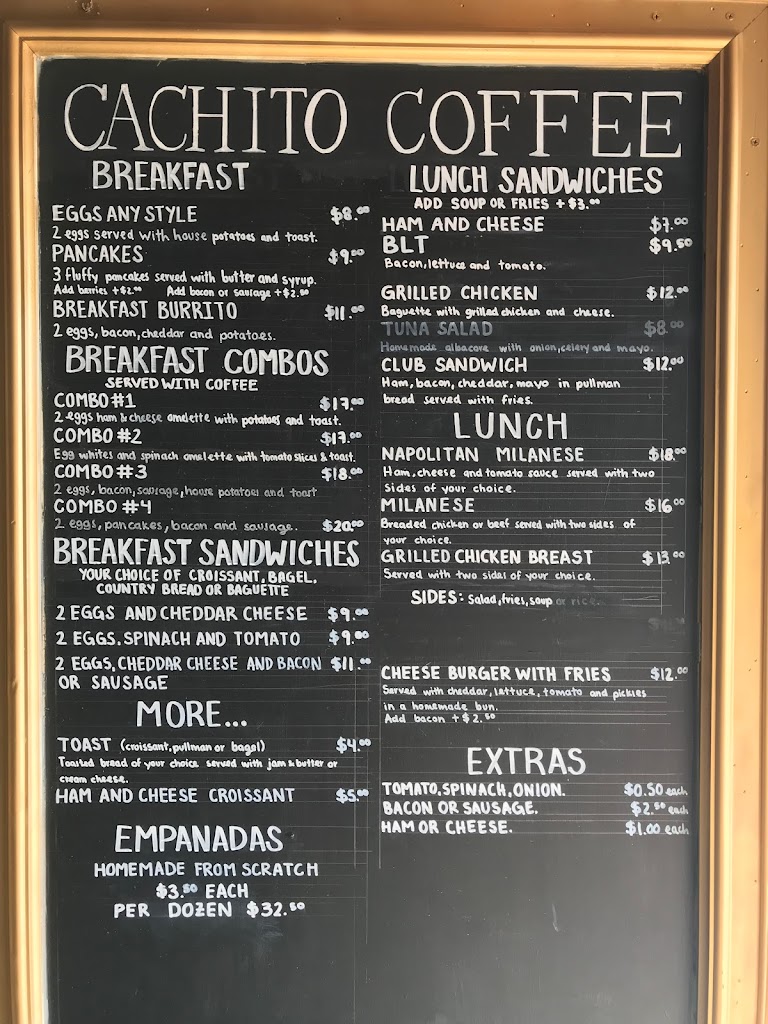 CACHITO COFFEE
BREAKFAST
EGGS ANY STYLE $8.00
2 eggs served with house potatoes and toast.
PANCAKES $9.50
3 fluffy pancakes served with butter and syrup.
Add berries +$2.00 Add bacon or sausage +$2.50
BREAKFAST BURRITO $11.00
2 eggs, bacon, cheddar and potatoes.
BREAKFAST COMBOS
SERVED WITH COFFEE
COMBO #1 $17.00
2 eggs ham & cheese omelette with potatoes and toast.
COMBO #2 $17.00
Egg whites and spinach omelette with tomato slices & toast.
COMBO #3 $18.00
2 eggs, bacon, sausage, house potatoes and toast
COMBO #4
2 eggs, pancakes, bacon and sausage. $20.00
BREAKFAST SANDWICHES
YOUR CHOICE OF CROISSANT, BAGEL,
COUNTRY BREAD OR BAGUETTE
2 EGGS AND CHEDDAR CHEESE $9.00
2 EGGS, SPINACH AND TOMATO $9.00
2 EGGS, CHEDDAR CHEESE AND BACON $11.00
OR SAUSAGE
MORE...
TOAST (croissant, pullman or bagel) $4.00
Toasted bread of your choice served with jam & butter or
cream cheese.
HAM AND CHEESE CROISSANT $5.00
EMPANADAS
HOMEMADE FROM SCRATCH
$3.50 EACH
PER DOZEN $32.50
LUNCH SANDWICHES
ADD SOUP OR FRIES +$3.00
HAM AND CHEESE $7.00
BLT $9.50
Bacon, lettuce and tomato.
GRILLED CHICKEN $12.00
Baguette with grilled chicken and cheese.
TUNA SALAD $8.00
Homemade albacore with onion, celery and mayo.
CLUB SANDWICH $12.00
Ham, bacon, cheddar, mayo in pullman
bread served with fries.
LUNCH
NAPOLITAN MILANESE $18.00
Ham, cheese and tomato sauce served with two
sides of your choice.
MILANESE $16.00
Breaded chicken or beef served with two sides of
your choice.
GRILLED CHICKEN BREAST $13.00
Served with two sides of your choice.
SIDES: Salad, fries, soup or rice.
CHEESE BURGER WITH FRIES $12.00
Served with cheddar, lettuce, tomato and pickles
in a homemade bun.
Add bacon +$2.50
EXTRAS
TOMATO, SPINACH, ONION. $0.50 each
BACON OR SAUSAGE. $2.50 each
HAM OR CHEESE. $1.00 each